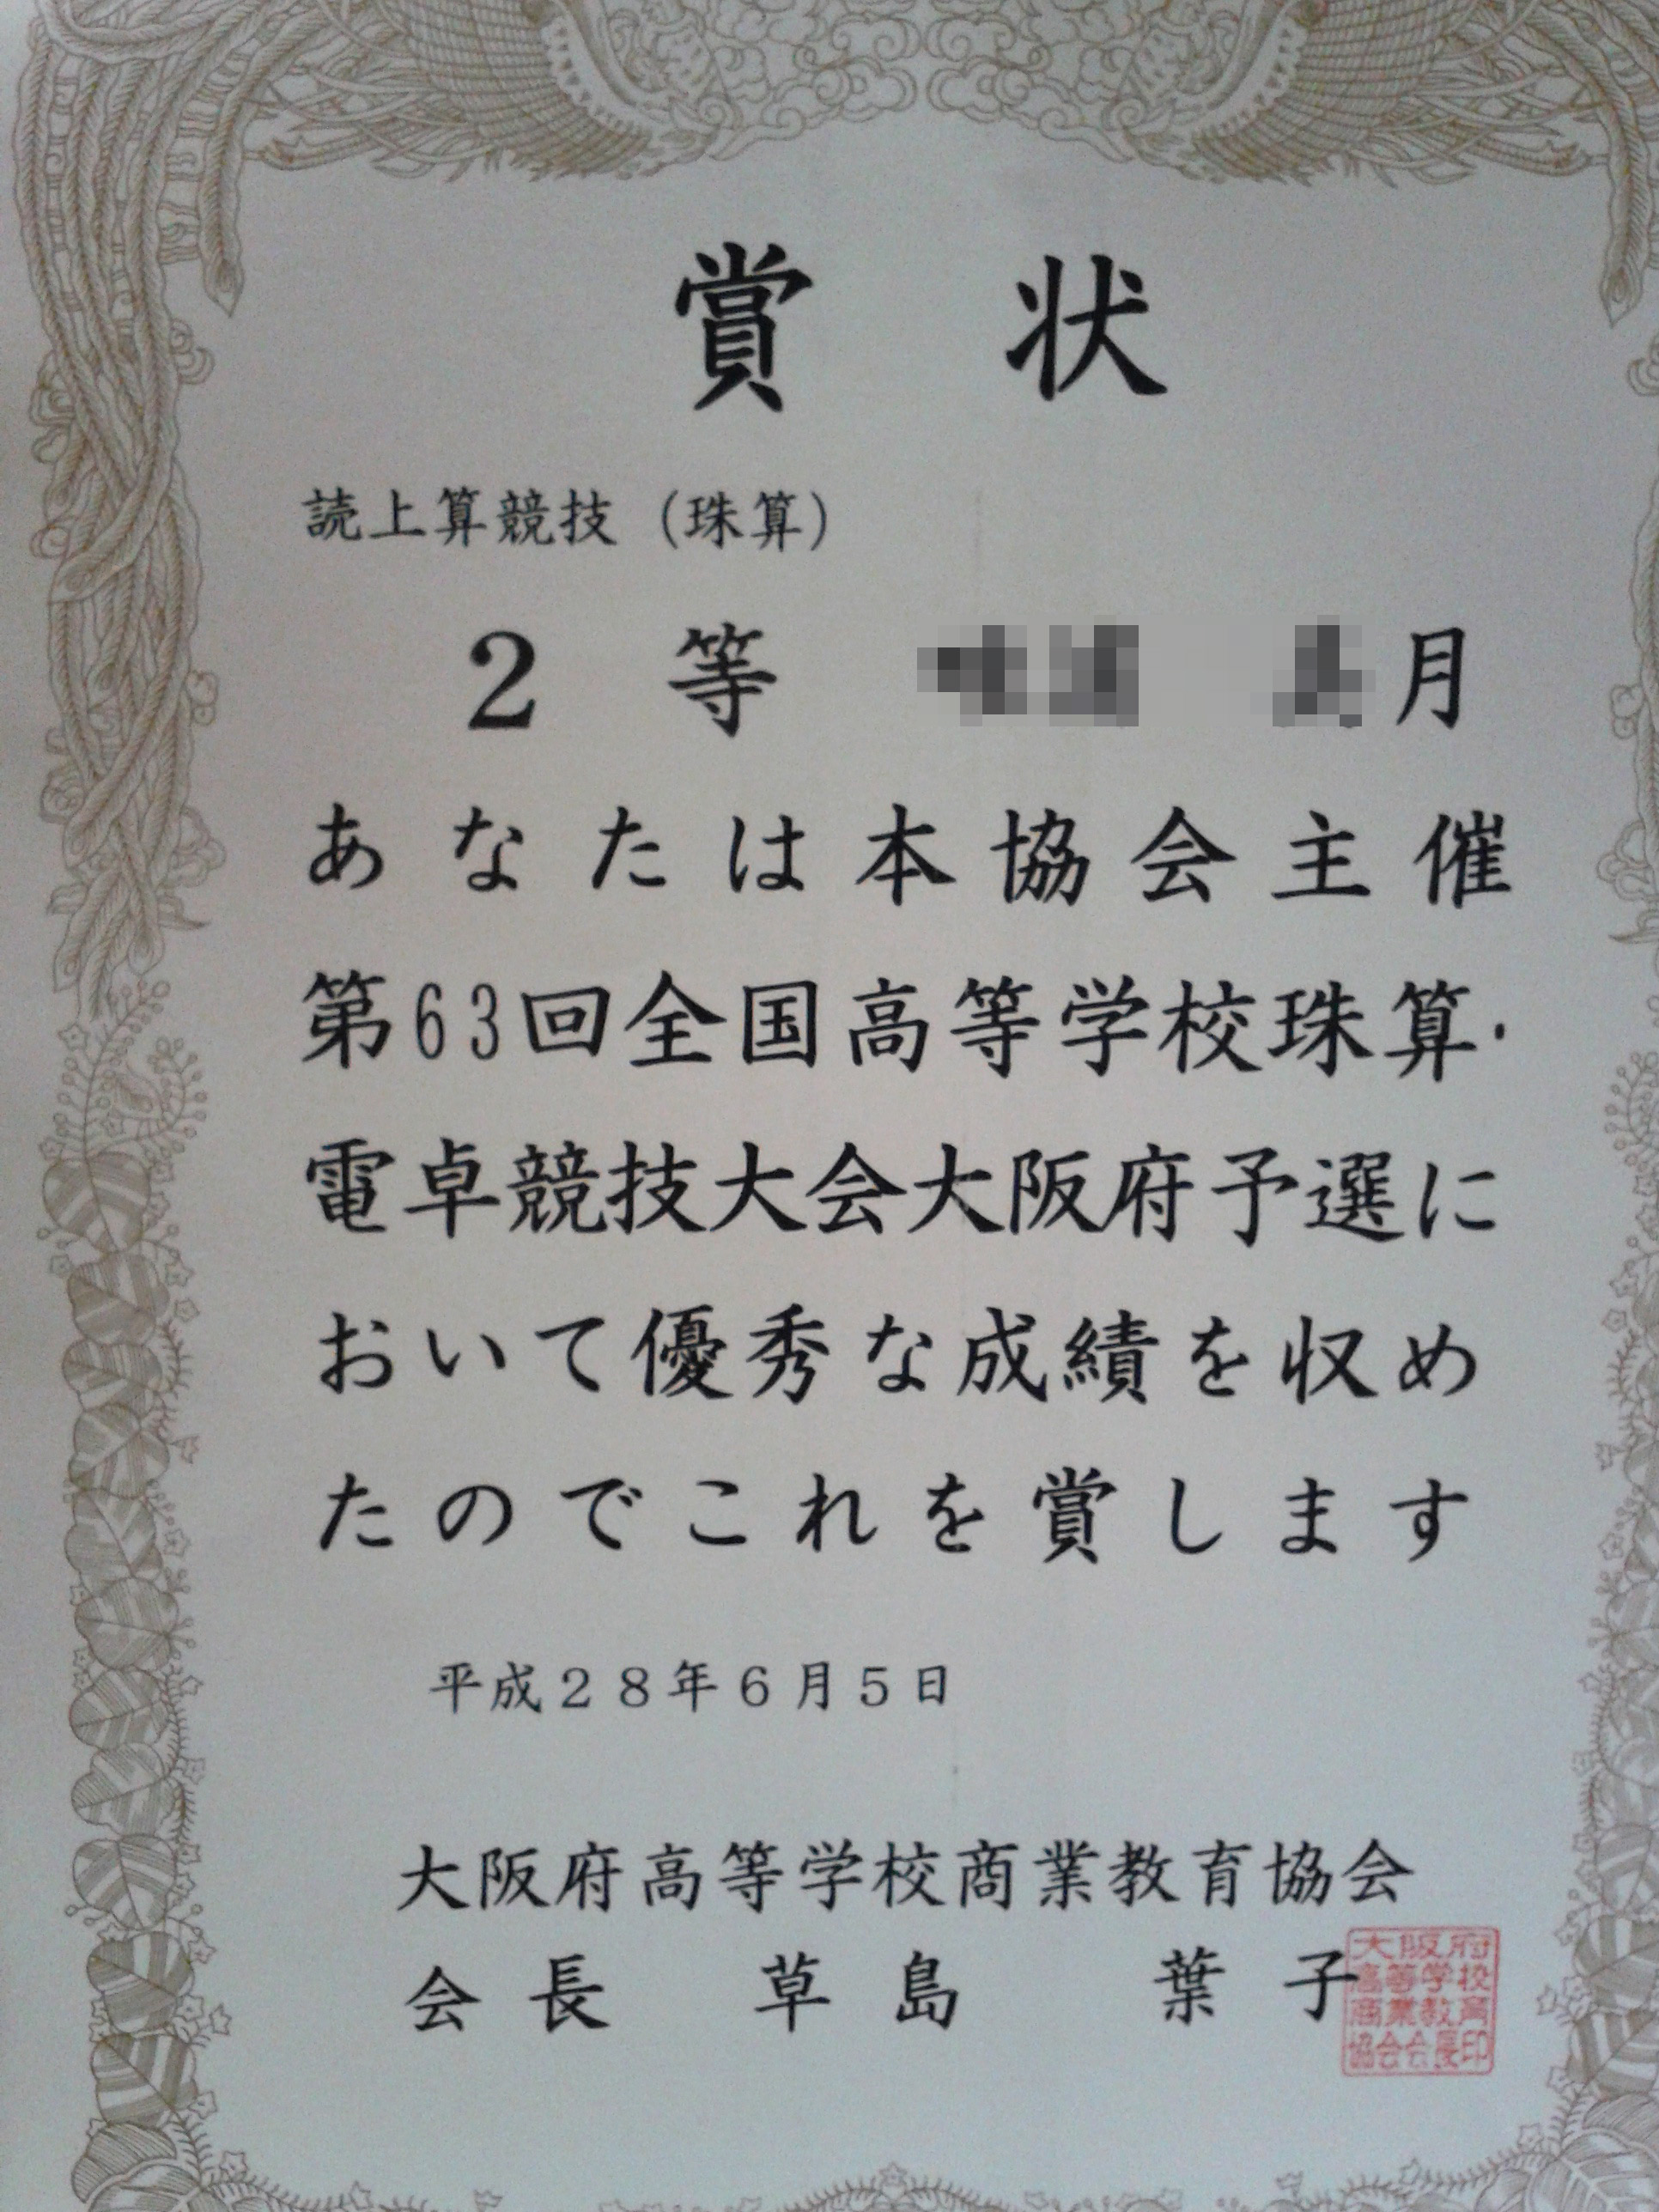 賞状
読上算競技（珠算）
2等 月
あなたは本協会主催
第63回全国高等学校珠算・
電卓競技大会大阪府予選に
おいて優秀な成績を収め
たのでこれを賞します
平成28年6月5日
大阪府高等学校商業教育協会
会長 草島 葉子
大阪府
高等学校
商業教育
協会会長印